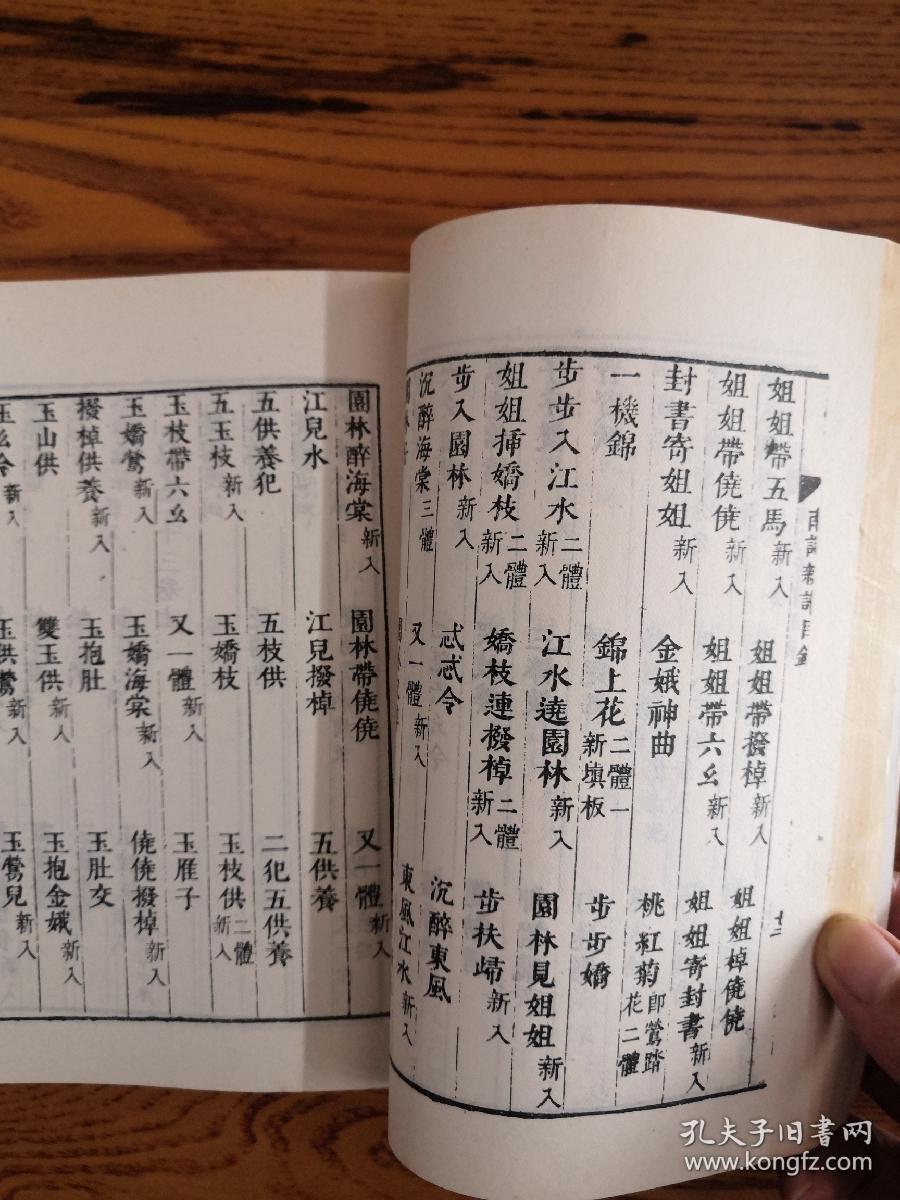 南詞新譜目錄
十三
姐姐帶五馬新入 姐姐帶撥棹新入 姐姐棹僥僥
姐姐帶僥僥新入 姐姐帶六幺新入 姐姐寄封書新入
封書寄姐姐新入 金娥神曲 桃紅菊即鶯踏花二體
一機錦 錦上花二體一新填板 步步嬌
步步入江水二體新入 江水遶園林新入 園林見姐姐新入
姐姐揷嬌枝二體新入 嬌枝連撥棹二體新入 步扶歸新入
步入園林新入 忒忒令 沉醉東風
沉醉海棠三體 又一體新入 東風江水新入
園林醉海棠新入 園林帶僥僥 又一體新入
江兒水 江兒撥棹 五供養
五供養犯 五枝供 二犯五供養
五玉枝新入 玉嬌枝 玉枝供二體新入
玉枝帶六幺 又一體新入 玉雁子
玉嬌鶯新入 玉嬌海棠新入 僥僥撥棹新入
撥棹供養新入 玉抱肚 玉肚交
玉山供 雙玉供新入 玉抱金娥新入
玉幺令新入 玉供鶯新入 玉鶯兒新入
孔夫子旧书网
www.kongfz.com